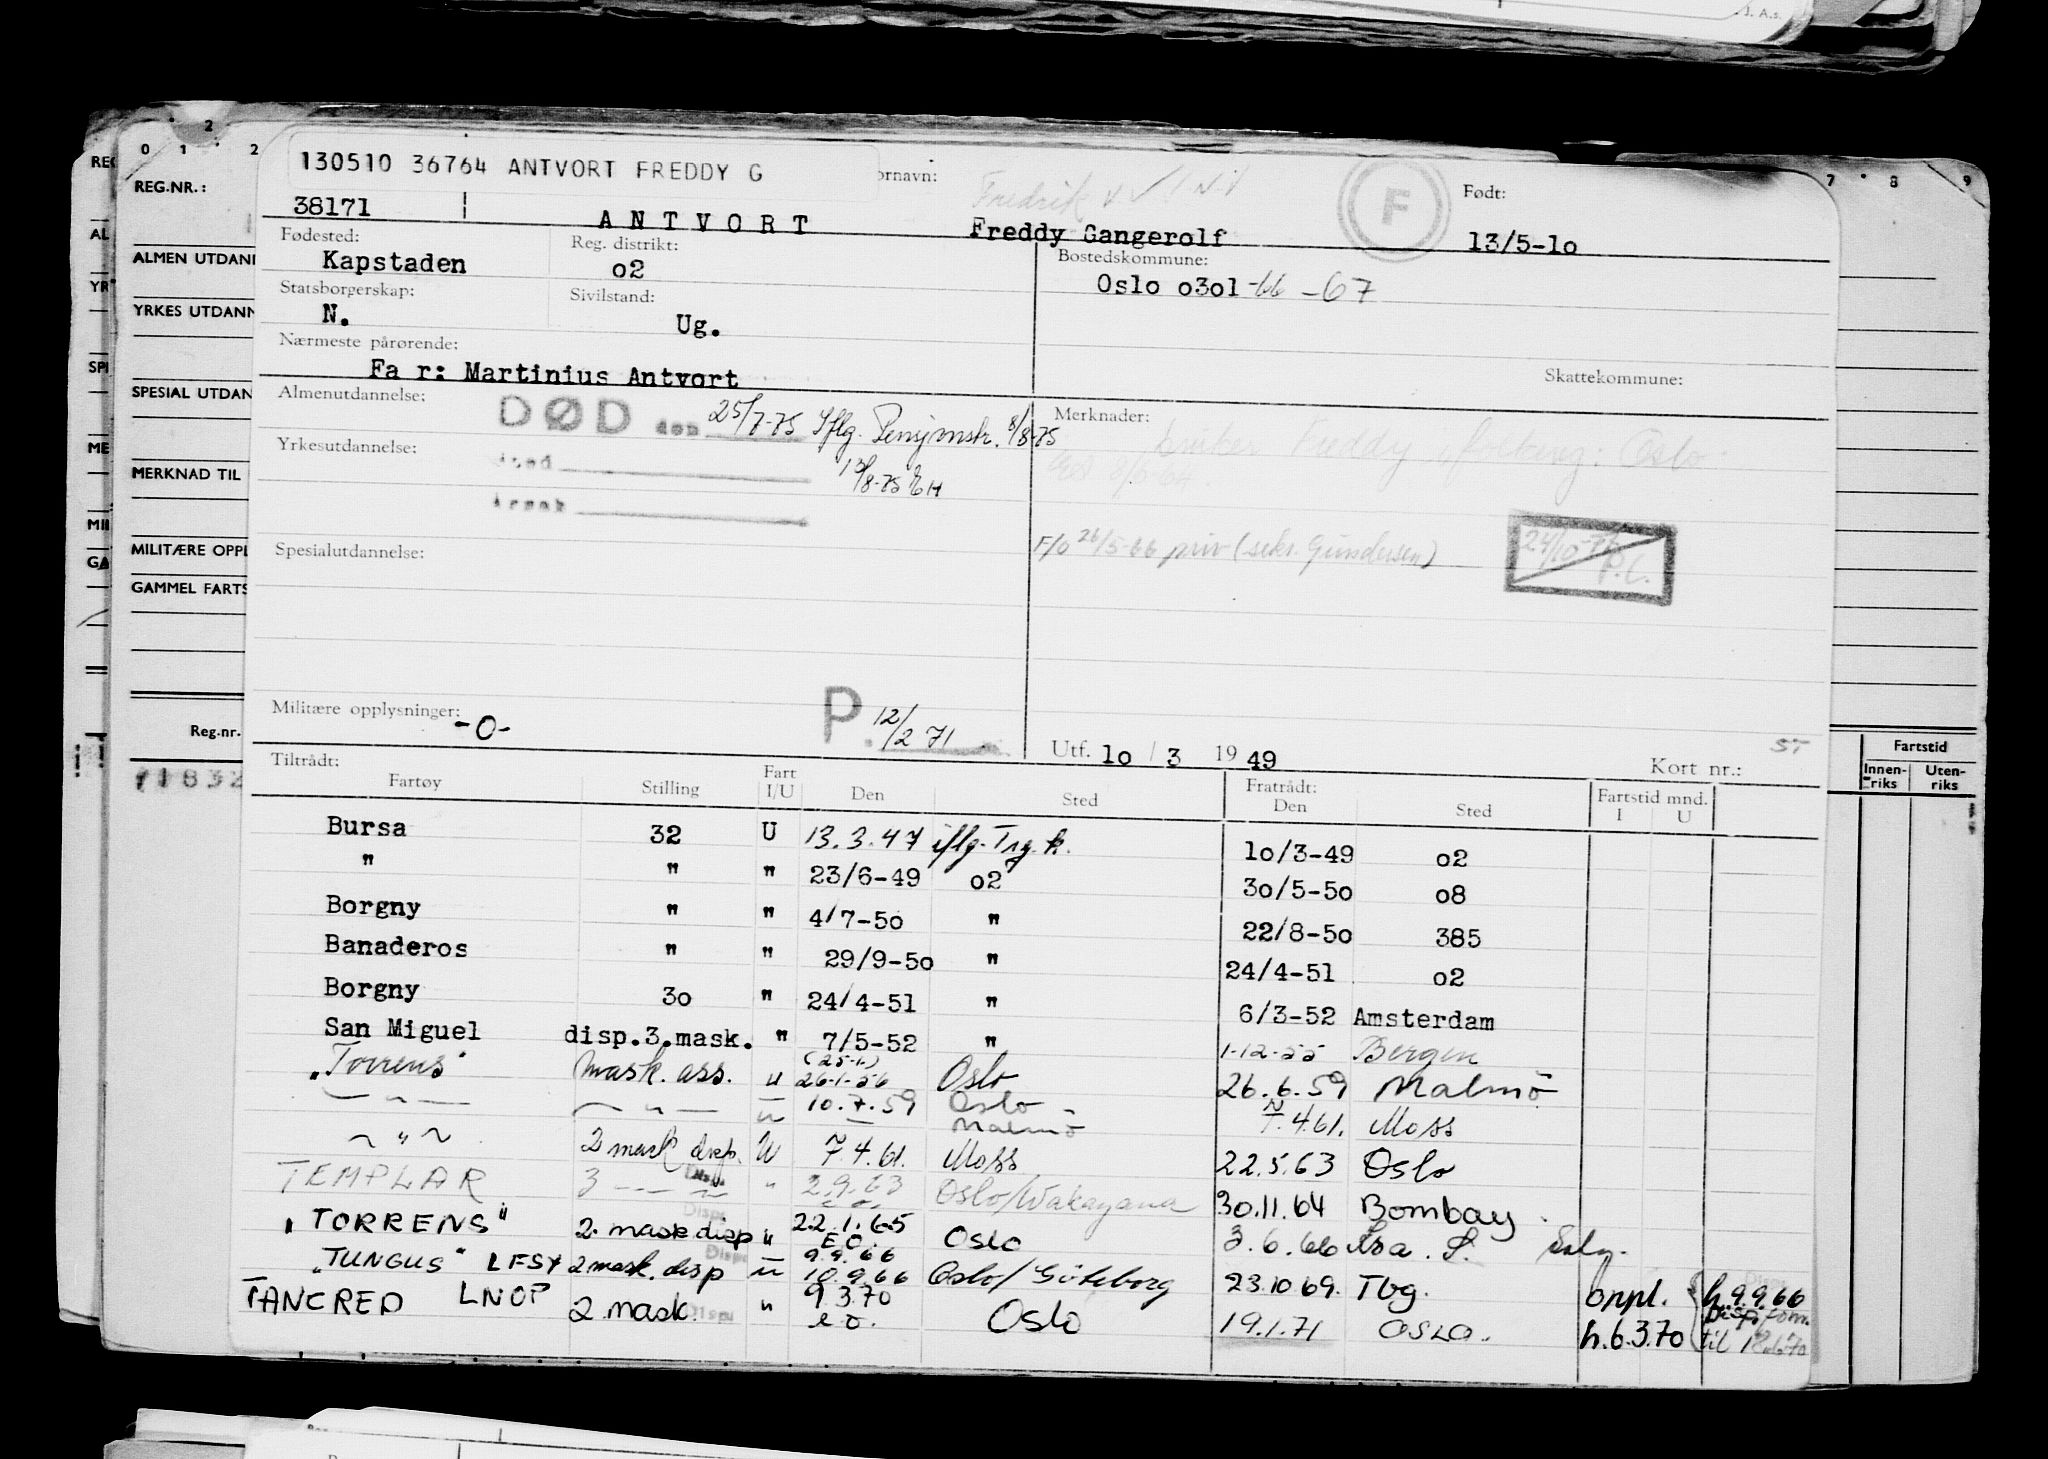 J. A. s.
0 1 2
7 8 9
REG.NR.:
ALMEN UTDANN
YRKES UTDANN
SPESIAL UTDAN
MERKNAD TIL
MILITÆRE OPPL
GAMMEL FARTS
Reg.nr.
71832
Fartstid
Innen-riks Uten-riks
130510 36764 ANTVORT FREDDY G
ornavn: Fredrik
F
Født:
38171 ANTVORT Freddy Gangerolf 13/5-10
Fødested: Reg. distrikt: Bostedskommune:
Kapstaden 02 Oslo 0301 -66 -67
Statsborgerskap: Sivilstand:
N. Ug.
Nærmeste pårørende:
Fa r: Martinius Antvort
Skattekommune:
Almenutdannelse: DØD den 25/7-75 Iflg. Pensjonstr. 8/8-75 Merknader:
bruker Freddy folkereg: Oslo
Yrkesutdannelse: Sted
Årsak
F/O 26/5-66 priv (sekr. Gundersen)
Spesialutdannelse:
Militære opplysninger: -0- P. 12/2 71
Utf. 10 / 3 1949 Kort nr.: ST
Tiltrådt: Fratrådt:
Fartøy Stilling Fart I/U Den Sted Den Sted Fartstid mnd. I U
Bursa 32 U 13.3.47 iflg. Trg.k. 10/3-49 02
" " " 23/6-49 02 30/5-50 08
Borgny " " 4/7-50 " 22/8-50 385
Banaderos " " 29/9-50 " 24/4-51 02
Borgny 30 " 24/4-51 " 6/3-52 Amsterdam
San Miguel disp.3.mask. " 7/5-52 " 1-12-55 Bergen
"Torrens" Mask. ass. u (25-1) 26-1-56 Oslo 26.6.59 Malmö
— " — — " — u 10.7.59 Oslo Malmö 7.4.61. Moss
~ " ~ 2 mask disp. U 7.4.61. Moss 22.5.63 Oslo
TEMPLAR 3 — " — Disp. " 2.9.63 Oslo/Wakayama 30.11.64 Bombay.
"TORRENS" 2. mask disp " 22.1.65 E.O. Oslo 3.6.66
"TUNGUS" LFSY 2 mask. disp u 9.9.66 10.9.66 Oslo/Göteborg 23.10 69. Tbg. oppl. h.9.9.66
TANCRED LNOP 2. mask. Disp " 9.3.70 e.o. Oslo 19.1.71 OSLO. h.6.3.70 Disp. til